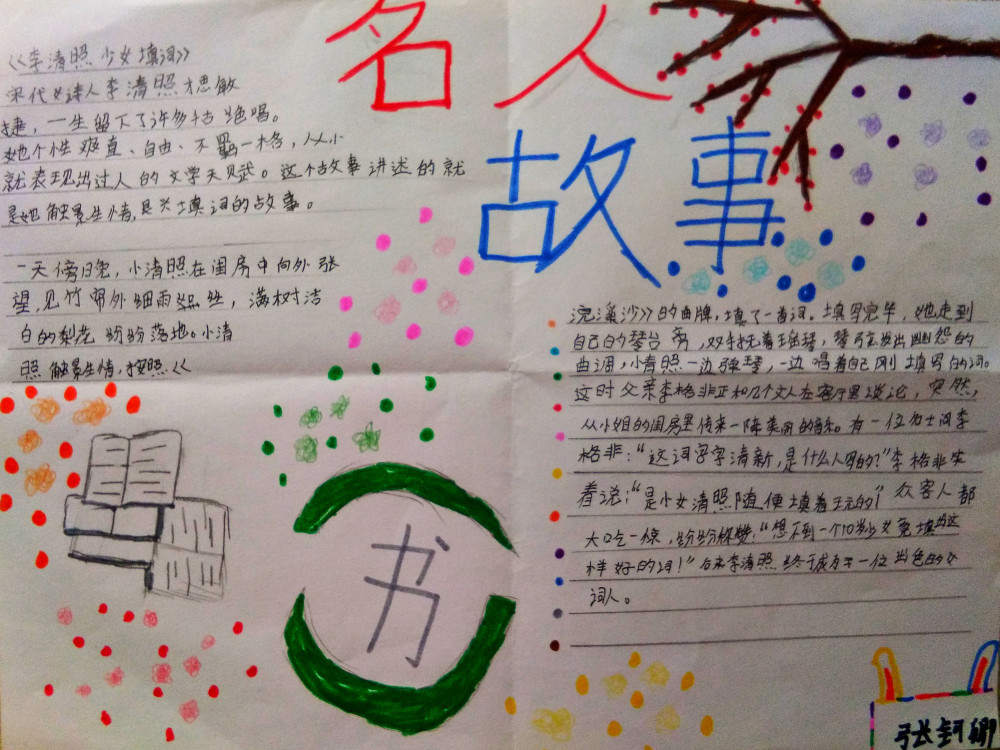 名人
故事
《李清照少女填词》
宋代女诗人李清照才思敏
捷，一生留下了许多千古绝唱。
她个性爽直、自由、不羁一格，从小
就表现出过人的文学天赋。这个故事讲述的就
是她触景生情，是头填词的故事。
一天傍晚，小清照在闺房中向外张
望，见竹帘外细雨丝丝，满树洁
白的梨花纷纷落地。小清
照触景生情，按照《
浣溪沙》的曲牌，填了一首词。填写完毕，她走到
自己的琴台旁，双手抚着瑶琴，琴弦发出幽怨的
曲调，小清照一边弹琴，一边唱着自己刚填写的词。
这时父亲李格非正和几个文人在客厅里谈论，突然，
从小姐的闺房里传来一阵美丽的音乐。有一位名士问李
格非：“这词字字清新，是什么人写的？”李格非笑
着说：“是小女清照随便填着玩的！”众客人都
大吃一惊，纷纷称赞：“想不到一个10岁少女竟填出这
样好的词！”后来李清照终于成为了一位出色的女
词人。
书